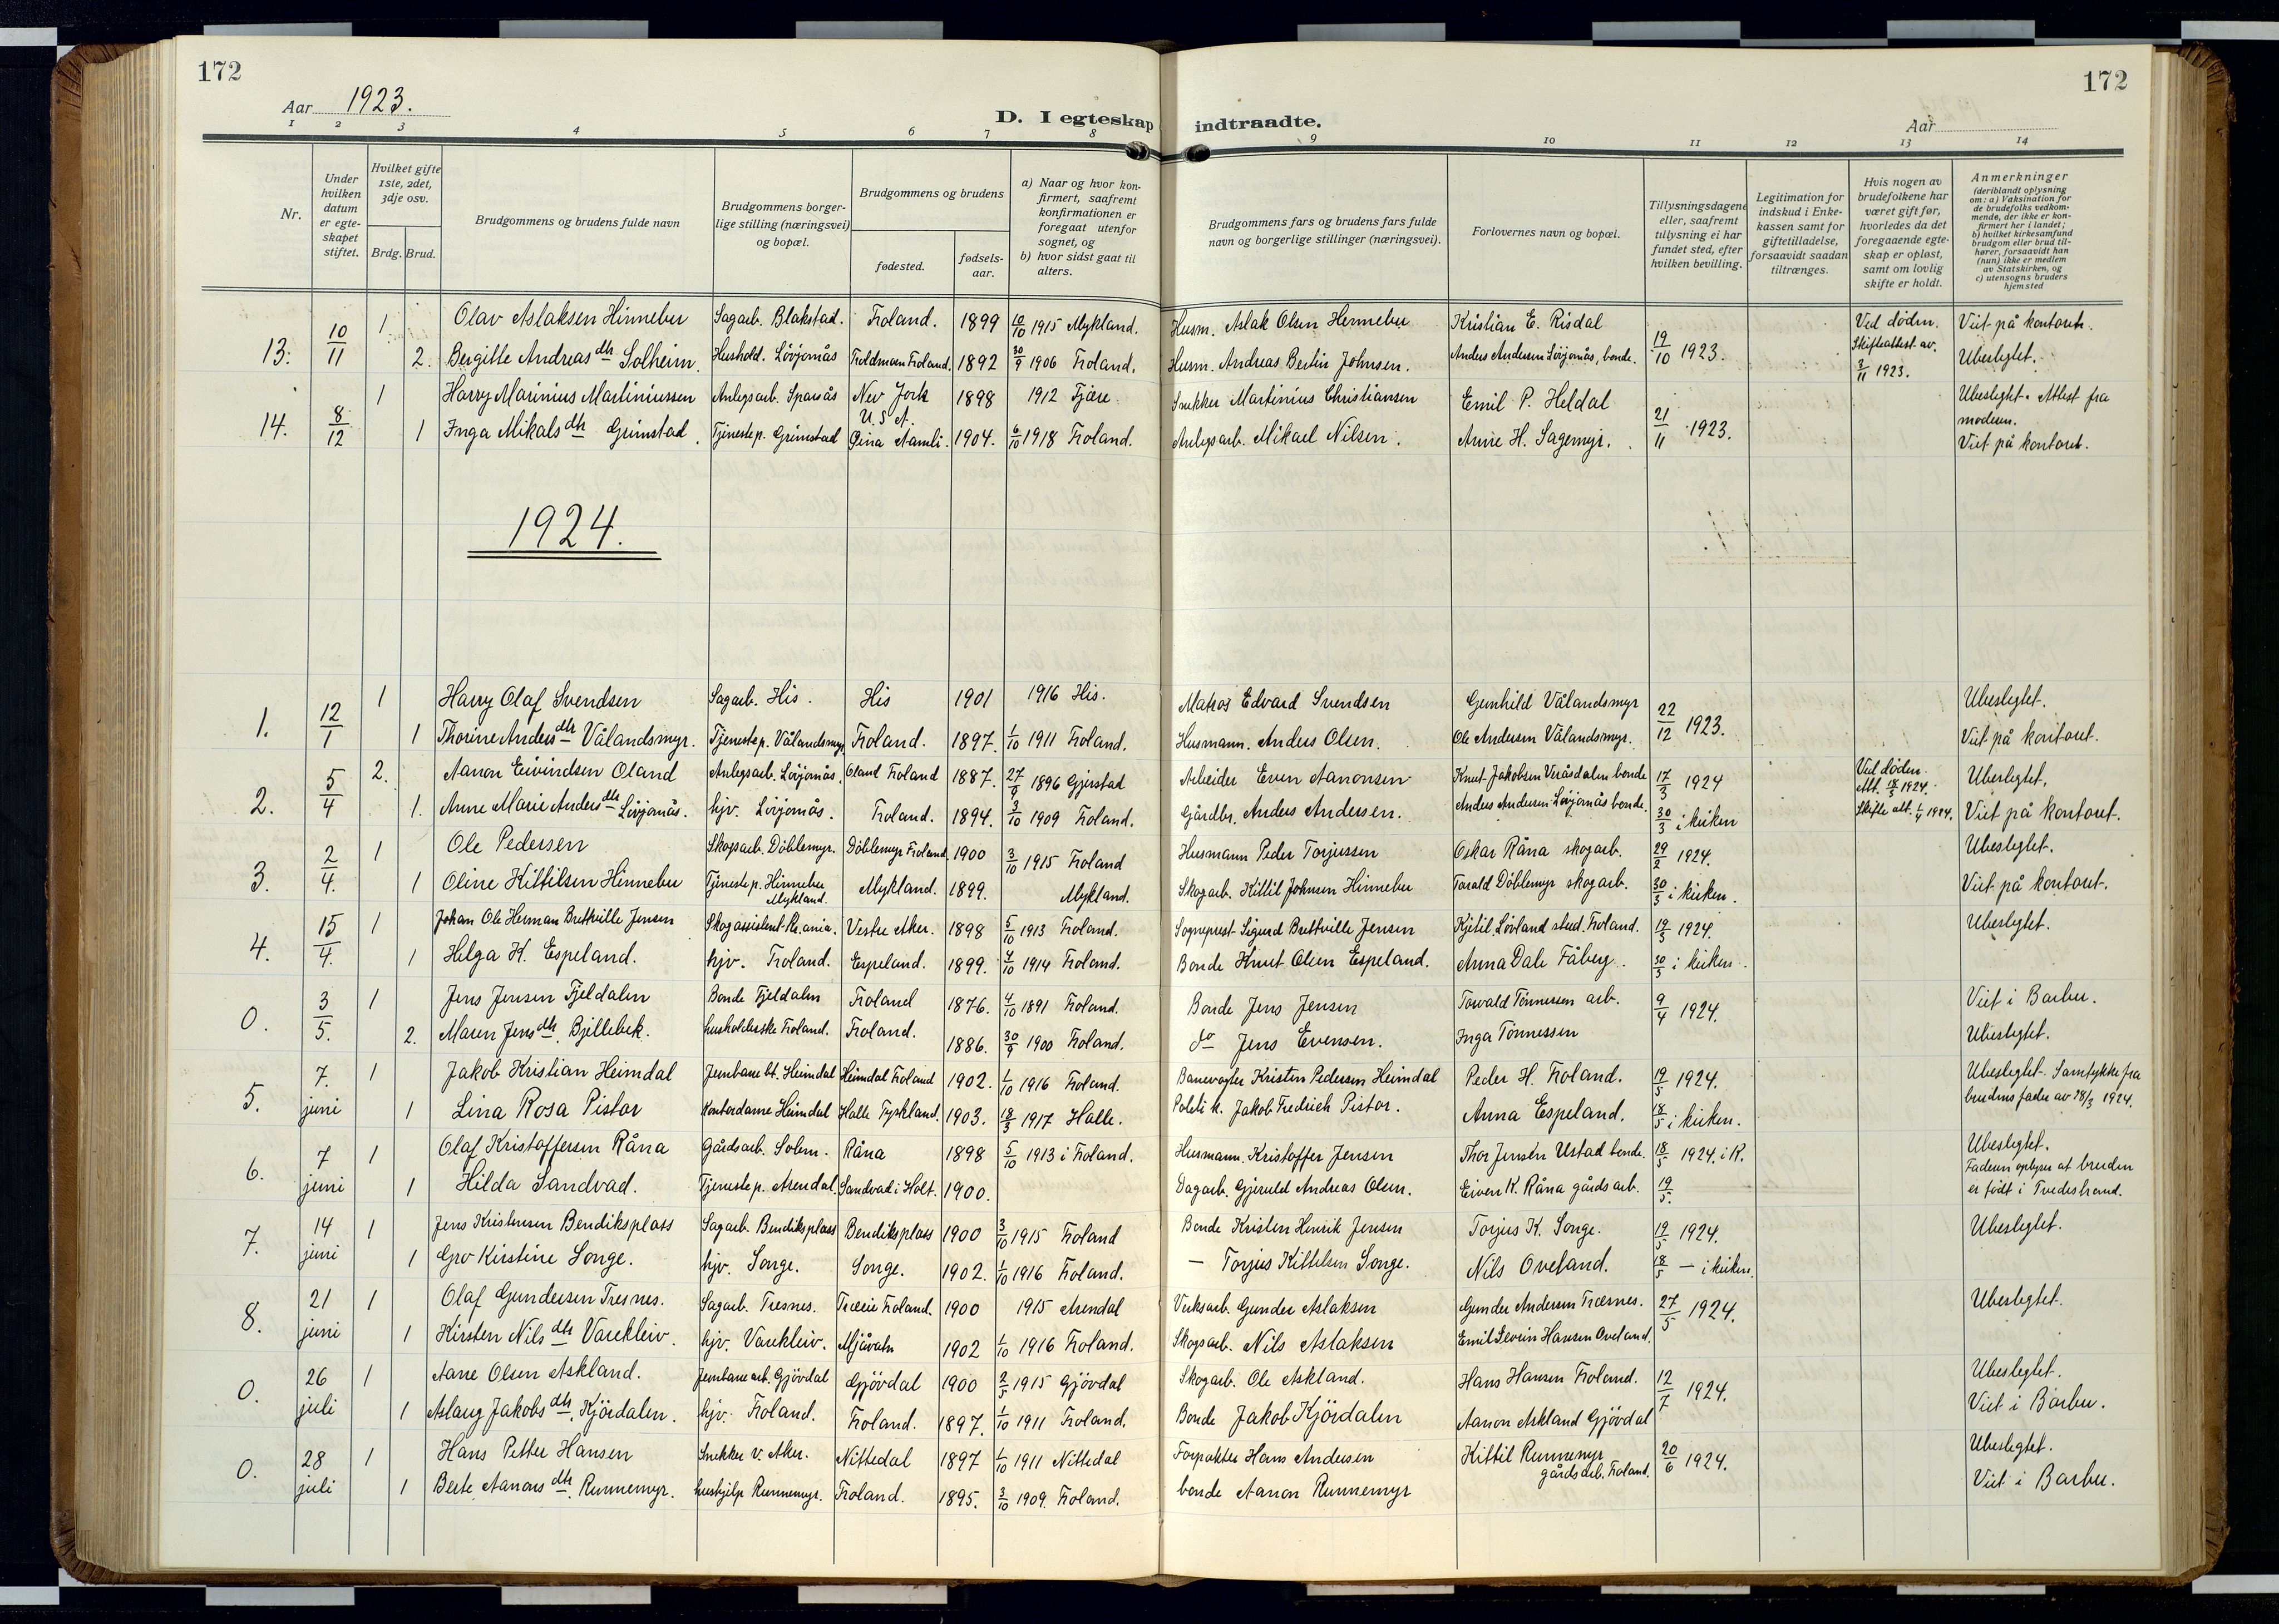 172
172
Aar 1923.
D. Iegteskap indtraadte.
Aar
1 2 3 4 5 6 7 8 9 10 11 12 13 14
Nr.
Under hvilken datum er egteskapet stiftet.
Hvilket gifte 1ste, 2det, 3dje osv.
Brdg. Brud.
Brudgommens og brudens fulde navn
Brudgommens borgerlige stilling (næringsvei) og bopæl.
Brudgommens og brudens
fødested.
fødselsaar.
a) Naar og hvor konfirmert, saafremt konfirmationen er foregaat utenfor sognet, og
b) hvor sidst gaat til alters.
Brudgommens fars og brudens fars fulde navn og borgerlige stillinger (næringsvei).
Forlovernes navn og bopæl.
Tillysningsdagene eller, saafremt tillysning ei har fundet sted, efter hvilken bevilling.
Legitimation for indskud i Enkekassen samt for giftetilladelse, forsaavidt saadan tiltrænges.
Hvis nogen av brudefolkene har været gift før, hvorledes da det foregaaende egteskap er opløst, samt om lovlig skifte er holdt.
Anmerkninger (deriblandt oplysning om: a) Vaksination for de brudefolks vedkommende, der ikke er konfirmert her i landet; b) hvilket kirkesamfund brudgom eller brud tilhører, forsaavidt han (hun) ikke er medlem av Statskirken, og c) utensogns bruders hjemsted
13. 10/11 1 Olav Aslaksen Hinnebu Sagarb. Blakstad. Froland. 1899 10/10 1915 Mykland. Husm. Aslak Olsen Hennebu Kristian E. Risdal 19/10 1923. Ved døden. Viet på kontoret.
2. Bergitte Andreas dtr Solheim. Hushold. Lövjomås Froland. 1892 30/9 1906 Froland. Husm. Andreas Bertin Johnsen. Anders Andersen Lövjomås, bonde. Skifteattest av. 3/11 1923. Ubeslegtet.
14. 8/12 1 Harry Marinius Martiniussen Anlegsarb. Sparsås New York U.S.A. 1898 1912 Fjære Snekker Martinius Christiansen Emil P. Heldal 21/11 1923. Ubeslegtet. Attest fra moderen.
1 Inga Mikals dtr Grimstad. Tjenestep. Grimstad Åmli. 1904. 6/10 1918 Froland. Anlegsarb. Mikael Nilsen. Anne H. Sagemyr. Viet på kontoret.
1924.
1. 12/1 1 Harry Olaf Svendsen Sagarb. His. His 1901 1916 His. Matros Edvard Svendsen Gunhild Vålandsmyr 22/12 1923. Ubeslegtet.
1 Thorine Anders dtr Vålandsmyr. Tjenestep. Vålandsmyr Froland. 1897. 1/10 1911 Froland. Husmann. Anders Olsen. Ole Andersen Vålandsmyr. Viet på kontoret.
2. 5/4 2. Aanon Eivindsen Oland Anlegsarb. Lövjomås. Oland Froland 1887. 27/9 1896 Gjerstad Arbeider Even Aanonsen Knut Jakobsen Veråsdalen bonde 17/3 1924 Ved döden. Att. 18/3 1924. Ubeslegtet.
1. Anne Marie Anders dtr Lövjomås. hjv. Lövjomås. Froland. 1894. 3/10 1909 Froland. Gårdbr. Anders Andersen. Anders Andersen Lövjomås bonde. 30/3 i kirken Skifte att. 1/4 1924. Viet på kontoret.
3. 2/4. 1 Ole Pedersen Skogsarb. Döblemyr. Döblemyr Froland. 1900 3/10 1915 Froland Husmann Peder Torjussen Oskar Råna skogarb. 29/2 1924. Ubeslegtet.
1 Oline Kittilsen Hinnebu Tjenestep. Hinnebu Mykland. Mykland. 1899. Mykland. Skogarb. Kittil Johnsen Hinnebu Torald Döblemyr skogarb. 30/3 i kirken. Viet på kontoret.
4. 15/4. 1 Johan Ole Herman Brettville Jensen Skogassistent Kr.ania. Vestre Aker. 1898 5/10 1913 Froland. Sogneprest Sigurd Brettville Jensen Kjetil Lövland stud. Froland. 19/3 1924. Ubeslegtet.
1 Helga K. Espeland. hjv. Froland. Espeland. 1899. 4/10 1914 Froland. Bonde Knut Olsen Espeland. Anna Dale Fåberg. 30/3 i kirken.
0. 3/5. 1 Jens Jensen Fjeldalen Bonde Fjeldalen Froland 1876. 4/10 1891 Froland. Bonde Jens Jensen Torvald Tönnessen arb. 9/4 1924. Viet i Barbu.
2. Maren Jens dtr. Bjellebek. husholderske Froland. Froland. 1886. 30/9 1900 Froland. do Jens Evensen. Inga Tönnessen Ubeslegtet.
5. 7. juni 1 Jakob Kristian Heimdal Jernbanebt. Heimdal Heimdal Froland 1902. 1/10 1916 Froland. Banevogter Kristen Pedersen Heimdal Peder H. Froland. 19/5 1924. Ubeslegtet. Samtykke fra
1 Lina Rosa Pistor Kontordame Heimdal Halle Tyskland. 1903. 18/3 1917 Halle. Politik. Jakob Fredrich Pistor. Anna Espeland. 18/5 i kirken. brudens fader av 28/3 1924.
6. 7 juni 1 Olaf Kristoffersen Råna Gårdsarb. Solem. Råna 1898 5/10 1913 i Froland. Husmann. Kristoffer Jensen Thor Jensen Ustad bonde. 18/5 1924. i K. Ubeslegtet.
1 Hilda Sandvad. Tjenestep. Arendal. Sandvad i Holt. 1900. Dagarb. Gjeruld Andreas Olsen. Eiven K. Råna gårdsarb. 19/5. Faderen oplyser at bruden er födt i Tvedestrand.
7. 14 juni 1 Jens Kristensen Bendiksplass Sagarb. Bendiksplass Bendiksplass 1900 3/10 1915 Froland Bonde Kristen Henrik Jensen Torjus K. Songe. 19/5 1924. Ubeslegtet.
1 Gro Kirstine Songe. hjv. Songe. Songe. 1902. 1/10 1916 Froland. — Torjus Kittelsen Songe. Nils Oveland. 18/5 — i kirken.
8. 21 juni 1 Olaf Gundersen Tresnes. Sagarb. Tresnes. Froland. 1900 1915 Arendal Verksarb. Gunder Aslaksen Gunder Andersen Træsnes. 27/5 1924. Ubeslegtet.
1 Kirsten Nils dtr Vaukleiv. hjv. Vaukleiv. Mjåvatn 1902 1/10 1916 Froland. Skogsarb. Nils Aslaksen Emil Severin Hansen Oveland.
0. 26 juli 1 Aane Olsen Askland. Jernbanearb. Gjövdal Gjövdal 1900 2/5 1915 Gjövdal Skogarb. Ole Askland. Hans Hansen Froland. 12/7 1924. Ubeslegtet.
1 Aslaug Jakobs dtr. Kjördalen. hjv. Froland. Froland. 1897. 1/10 1911 Froland. Bonde Jakob Kjördalen Aanon Askland Gjövdal Viet i Barbu.
0. 28 juli 1 Hans Petter Hansen Snekker v. Aker. Nittedal 1897 1/10 1911 Nittedal Forpakter Hans Andersen Kittil Runnemyr gårdsarb. Froland. 20/6 1924. Ubeslegtet.
1 Berte Aanons dtr. Runnemyr. hushjelp Runnemyr. Froland. 1895. 3/10 1909. Froland. bonde Aanon Runnemyr Viet i Barbu.